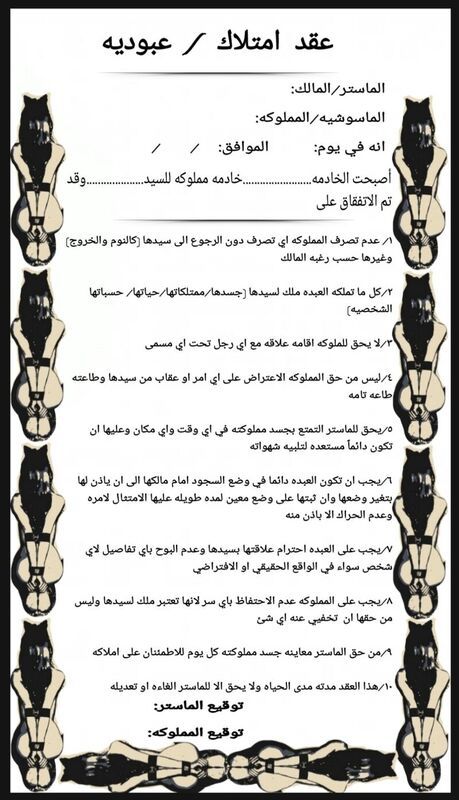 عقد امتلاك / عبوديه
الماستر/المالك:
الماسوشيه/المملوكه:
انه في يوم: الموافق: / /
أصبحت الخادمه......................خادمه مملوكه للسيد...................وقد
تم الاتفقاق على
١/ عدم تصرف المملوكه اي تصرف دون الرجوع الى سيدها (كالنوم والخروج)
وغيرها حسب رغبه المالك
٢/كل ما تملكه العبده ملك لسيدها (جسدها/ممتلكاتها/حياتها/ حسباتها
الشخصيه)
٣/لا يحق للملوكه اقامه علاقه مع اي رجل تحت اي مسمى
٤/ليس من حق المملوكه الاعتراض على اي امر او عقاب من سيدها وطاعته
طاعه تامه
٥/يحق للماستر التمتع بجسد مملوكته في اي وقت واي مكان وعليها ان
تكون دائماً مستعده لتلبيه شهواته
٦/يجب ان تكون العبده دائما في وضع السجود امام مالكها الى ان ياذن لها
بتغير وضعها وان ثبتها على وضع معين لمده طويله عليها الامتثال لامره
وعدم الحراك الا باذن منه
٧/يجب على العبده احترام علاقتها بسيدها وعدم البوح باي تفاصيل لاي
شخص سواء في الواقع الحقيقي او الافتراضي
٨/يجب على المملوكه عدم الاحتفاظ باي سر لانها تعتبر ملك لسيدها وليس
من حقها ان تخفيي عنه اي شئ
٩/من حق الماستر معاينه جسد مملوكته كل يوم للاطمئنان على املاكه
١٠/هذا العقد مدته مدى الحياه ولا يحق الا للماستر الغاءه او تعديله
توقيع الماستر:
توقيع المملوكه: